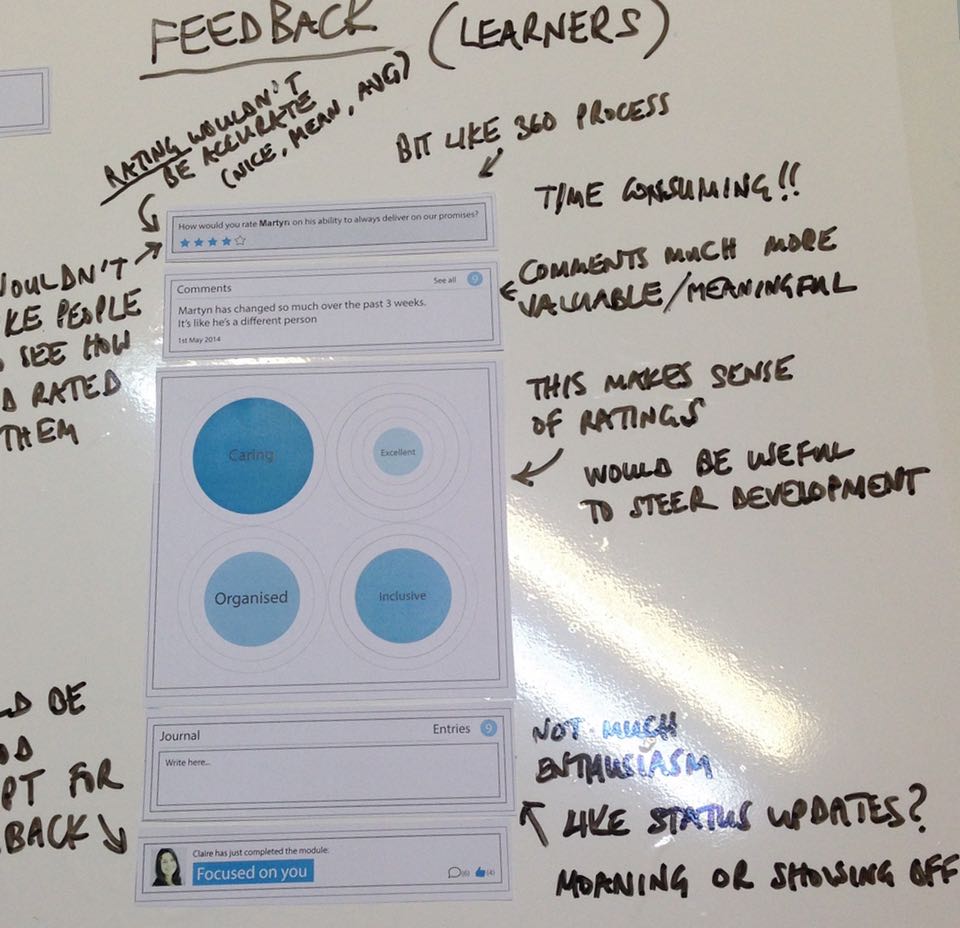 FEEDBACK (LEARNERS)
RATING WOULDN'T
BE ACCURATE
(NICE, MEAN, AVG)
BIT LIKE 360 PROCESS
TIME CONSUMING!!
How would you rate Martyn on his ability to always deliver on our promises?
WOULDN'T
PEOPLE
SEE HOW
RATED
THEM
Comments
See all 9
Martyn has changed so much over the past 3 weeks.
It's like he's a different person
1st May 2014
COMMENTS MUCH MORE
VALUABLE/MEANINGFUL
Caring
Excellent
Organised
Inclusive
THIS MAKES SENSE
OF RATINGS
WOULD BE USEFUL
TO STEER DEVELOPMENT
Journal
Entries 9
Write here...
NOT MUCH
ENTHUSIASM
LIKE STATUS UPDATES?
MOANING OR SHOWING OFF
BE
FOR
BACK
Claire has just completed the module:
Focused on you
(6) (4)